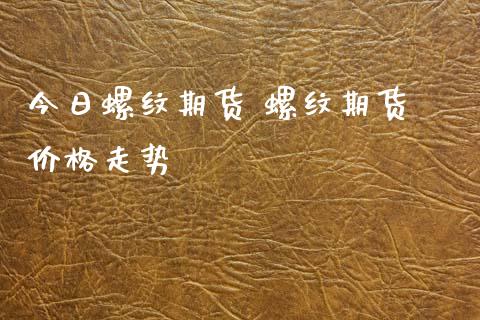 今日螺纹期货 螺纹期货
价格走势